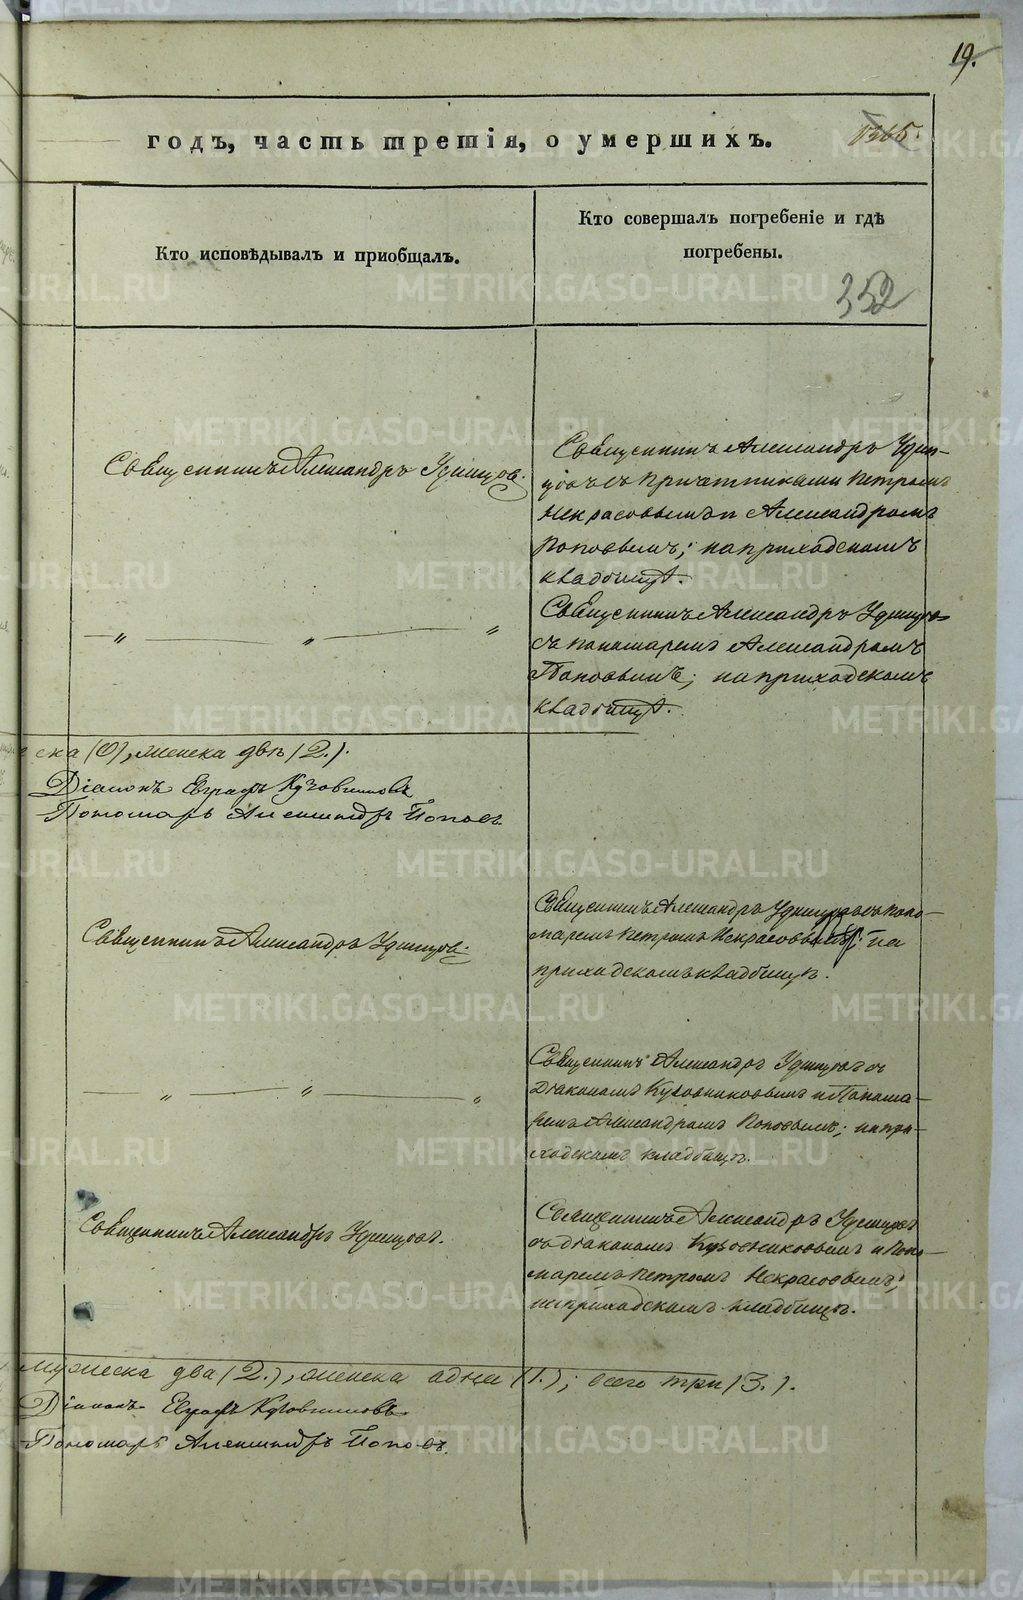 19.
годъ, часть третія, о умершихъ.
1365.
Кто исповѣдывалъ и приобщалъ.
Кто совершалъ погребеніе и гдѣ
погребены.
352
Священникъ Александръ Удинцов.
Священникъ Александръ Удин-
цовъ съ Причетниками Петромъ
Некрасовымъ и Александромъ
Поповымъ; на приходскомъ
кладбищѣ.
— „ — „ — „
Священникъ Александръ Удинцовъ
съ пономаремъ Александромъ
Поповымъ; на приходскомъ
кладбищѣ.
ска (0), женска двѣ (2.).
Діаконъ Евграфъ Кузовниковъ
Пономарь Александръ Поповъ.
Священникъ Александръ Удинцов.
Священникъ Александръ Удинцовъ съ поно-
маремъ Петромъ Некрасовымъ; на
приходскомъ кладбищѣ.
— „ — „ — „
Священникъ Александръ Удинцовъ съ
Діакономъ Кузовниковымъ и Понома-
ремъ Александромъ Поповымъ; на при-
ходскомъ кладбищѣ.
Священникъ Александръ Удинцовъ.
Священникъ Александръ Удинцовъ
съ діакономъ Кузовниковымъ и Поно-
маремъ Петромъ Некрасовымъ;
на приходскомъ кладбищѣ.
мужеска два (2.), женска одна (1.); всего три (3.).
Діаконъ Евграфъ Кузовниковъ
Пономарь Александръ Поповъ.
METRIKI.GASO-URAL.RU